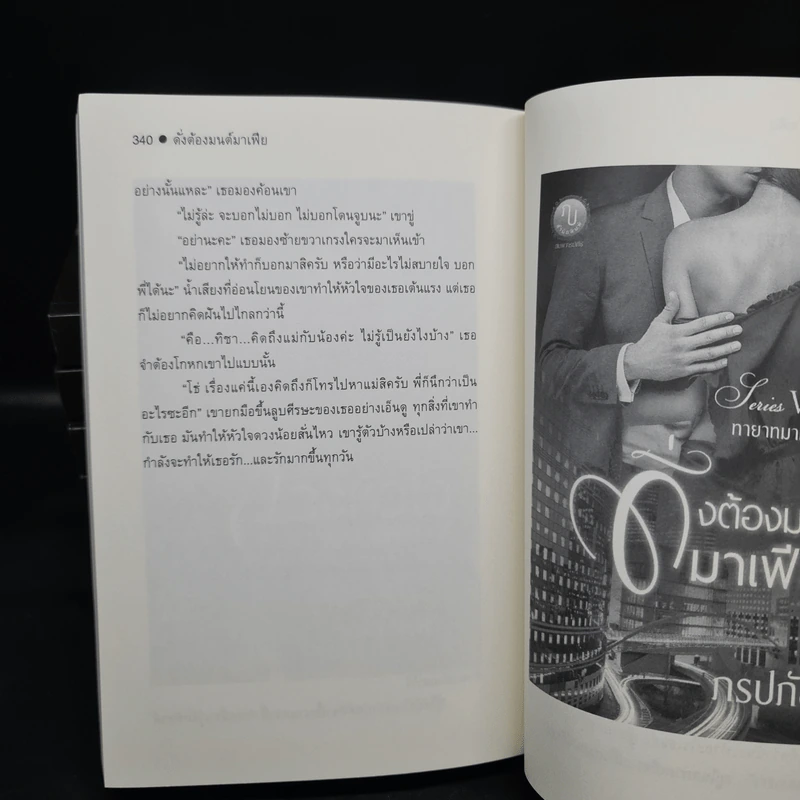 340 ● ดั่งต้องมนต์มาเฟีย
อย่างนั้นแหละ” เธอมองค้อนเขา
“ไม่รู้ล่ะ จะบอกไม่บอก ไม่บอกโดนจูบนะ” เขาขู่
“อย่านะคะ” เธอมองซ้ายขวาเกรงใครจะมาเห็นเข้า
“ไม่อยากให้ทำก็บอกมาสิครับ หรือว่ามีอะไรไม่สบายใจ บอก
พี่ได้นะ” น้ำเสียงที่อ่อนโยนของเขาทำให้หัวใจของเธอเต้นแรง แต่เธอ
ก็ไม่อยากคิดฝันไปไกลกว่านี้
“คือ...ทิชา...คิดถึงแม่กับน้องค่ะ ไม่รู้เป็นยังไงบ้าง” เธอ
จำต้องโกหกเขาไปแบบนั้น
“โธ่ เรื่องแค่นี้เองคิดถึงก็โทรไปหาแม่สิครับ พี่ก็นึกว่าเป็น
อะไรซะอีก” เขายกมือขึ้นลูบศีรษะของเธออย่างเอ็นดู ทุกสิ่งที่เขาทำ
กับเธอ มันทำให้หัวใจดวงน้อยสั่นไหว เขารู้ตัวบ้างหรือเปล่าว่าเขา...
กำลังจะทำให้เธอรัก...และรักมากขึ้นทุกวัน
Series
ทายาทมา
ดั่งต้องม
มาเฟี
กรปภั